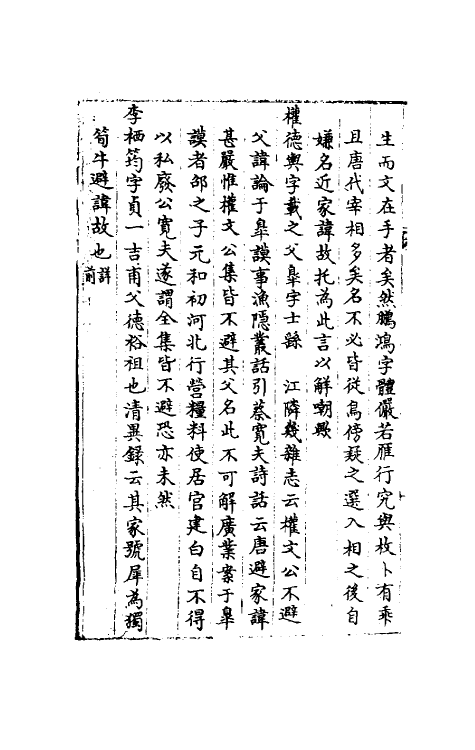 生而文在手者矣然鵬鴻字體儼若雁行究與枚卜有乖
且唐代宰相多矣名不必皆從鳥傍疑之選入相之後自
嫌名近家諱故托為此言以解嘲歟
權德輿字載之父臯字士繇　江隣幾雜志云權文公不避
父諱論于臯謨事漁隱叢話引蔡寬夫詩話云唐避家諱
甚嚴惟權文公集皆不避其父名此不可解廣業案于臯
謨者邵之子元和初河北行營糧料使居官建白自不得
以私廢公寬夫遂謂全集皆不避恐亦未然
李栖筠字貞一吉甫父德裕祖也清異録云其家號犀為獨
筍牛避諱故也詳前